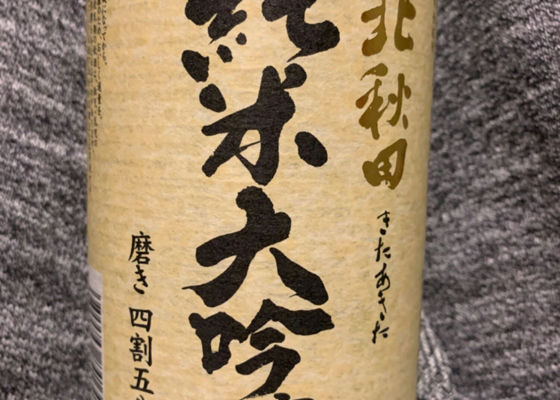 北秋田
きたあきた
純米大吟
磨き 四割五